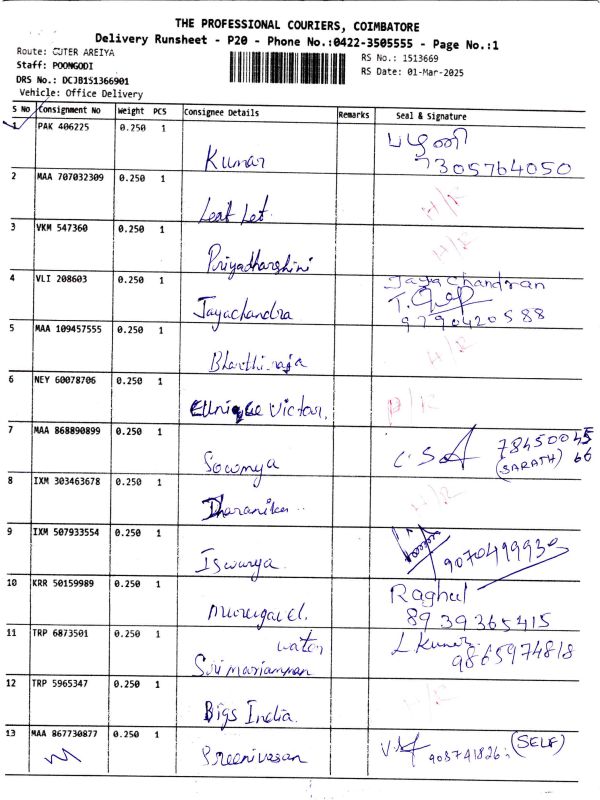 THE PROFESSIONAL COURIERS, COIMBATORE
Delivery Runsheet - P20 - Phone No.:0422-3505555 - Page No.:1
Route: CUTER AREIYA
RS No.: 1513669
Staff: POONGODI
RS Date: 01-Mar-2025
DRS No.: DCJB151366901
Vehicle: Office Delivery
S No Consignment No Weight PCS Consignee Details Remarks Seal & Signature
1 PAK 406225 0.250 1 பழனி
Kumar 7305764050
2 MAA 707032309 0.250 1
Leaf Let. H/R
3 VKM 547360 0.250 1
Priyadharshini H/R
4 VLI 208603 0.250 1 Jaya Chandran
Jayachandra 9790420588
5 MAA 109457555 0.250 1
Bharthiraja H/R
6 NEY 60078706 0.250 1
Eunique Victor. H/R
7 MAA 868890899 0.250 1 78450045
Sowmya (SARATH) 66
8 IXM 303463678 0.250 1
Dharanika H/R
9 IXM 507933554 0.250 1
Iswarya
10 KRR 50159989 0.250 1 Raghul
Murugavel. 8939365415
11 TRP 6873501 0.250 1 water L Kumar
Sri mariamman 9865974818
12 TRP 5965347 0.250 1
Bigs India. H/R
13 MAA 867730877 0.250 1 (SELF)
Sreenivasan